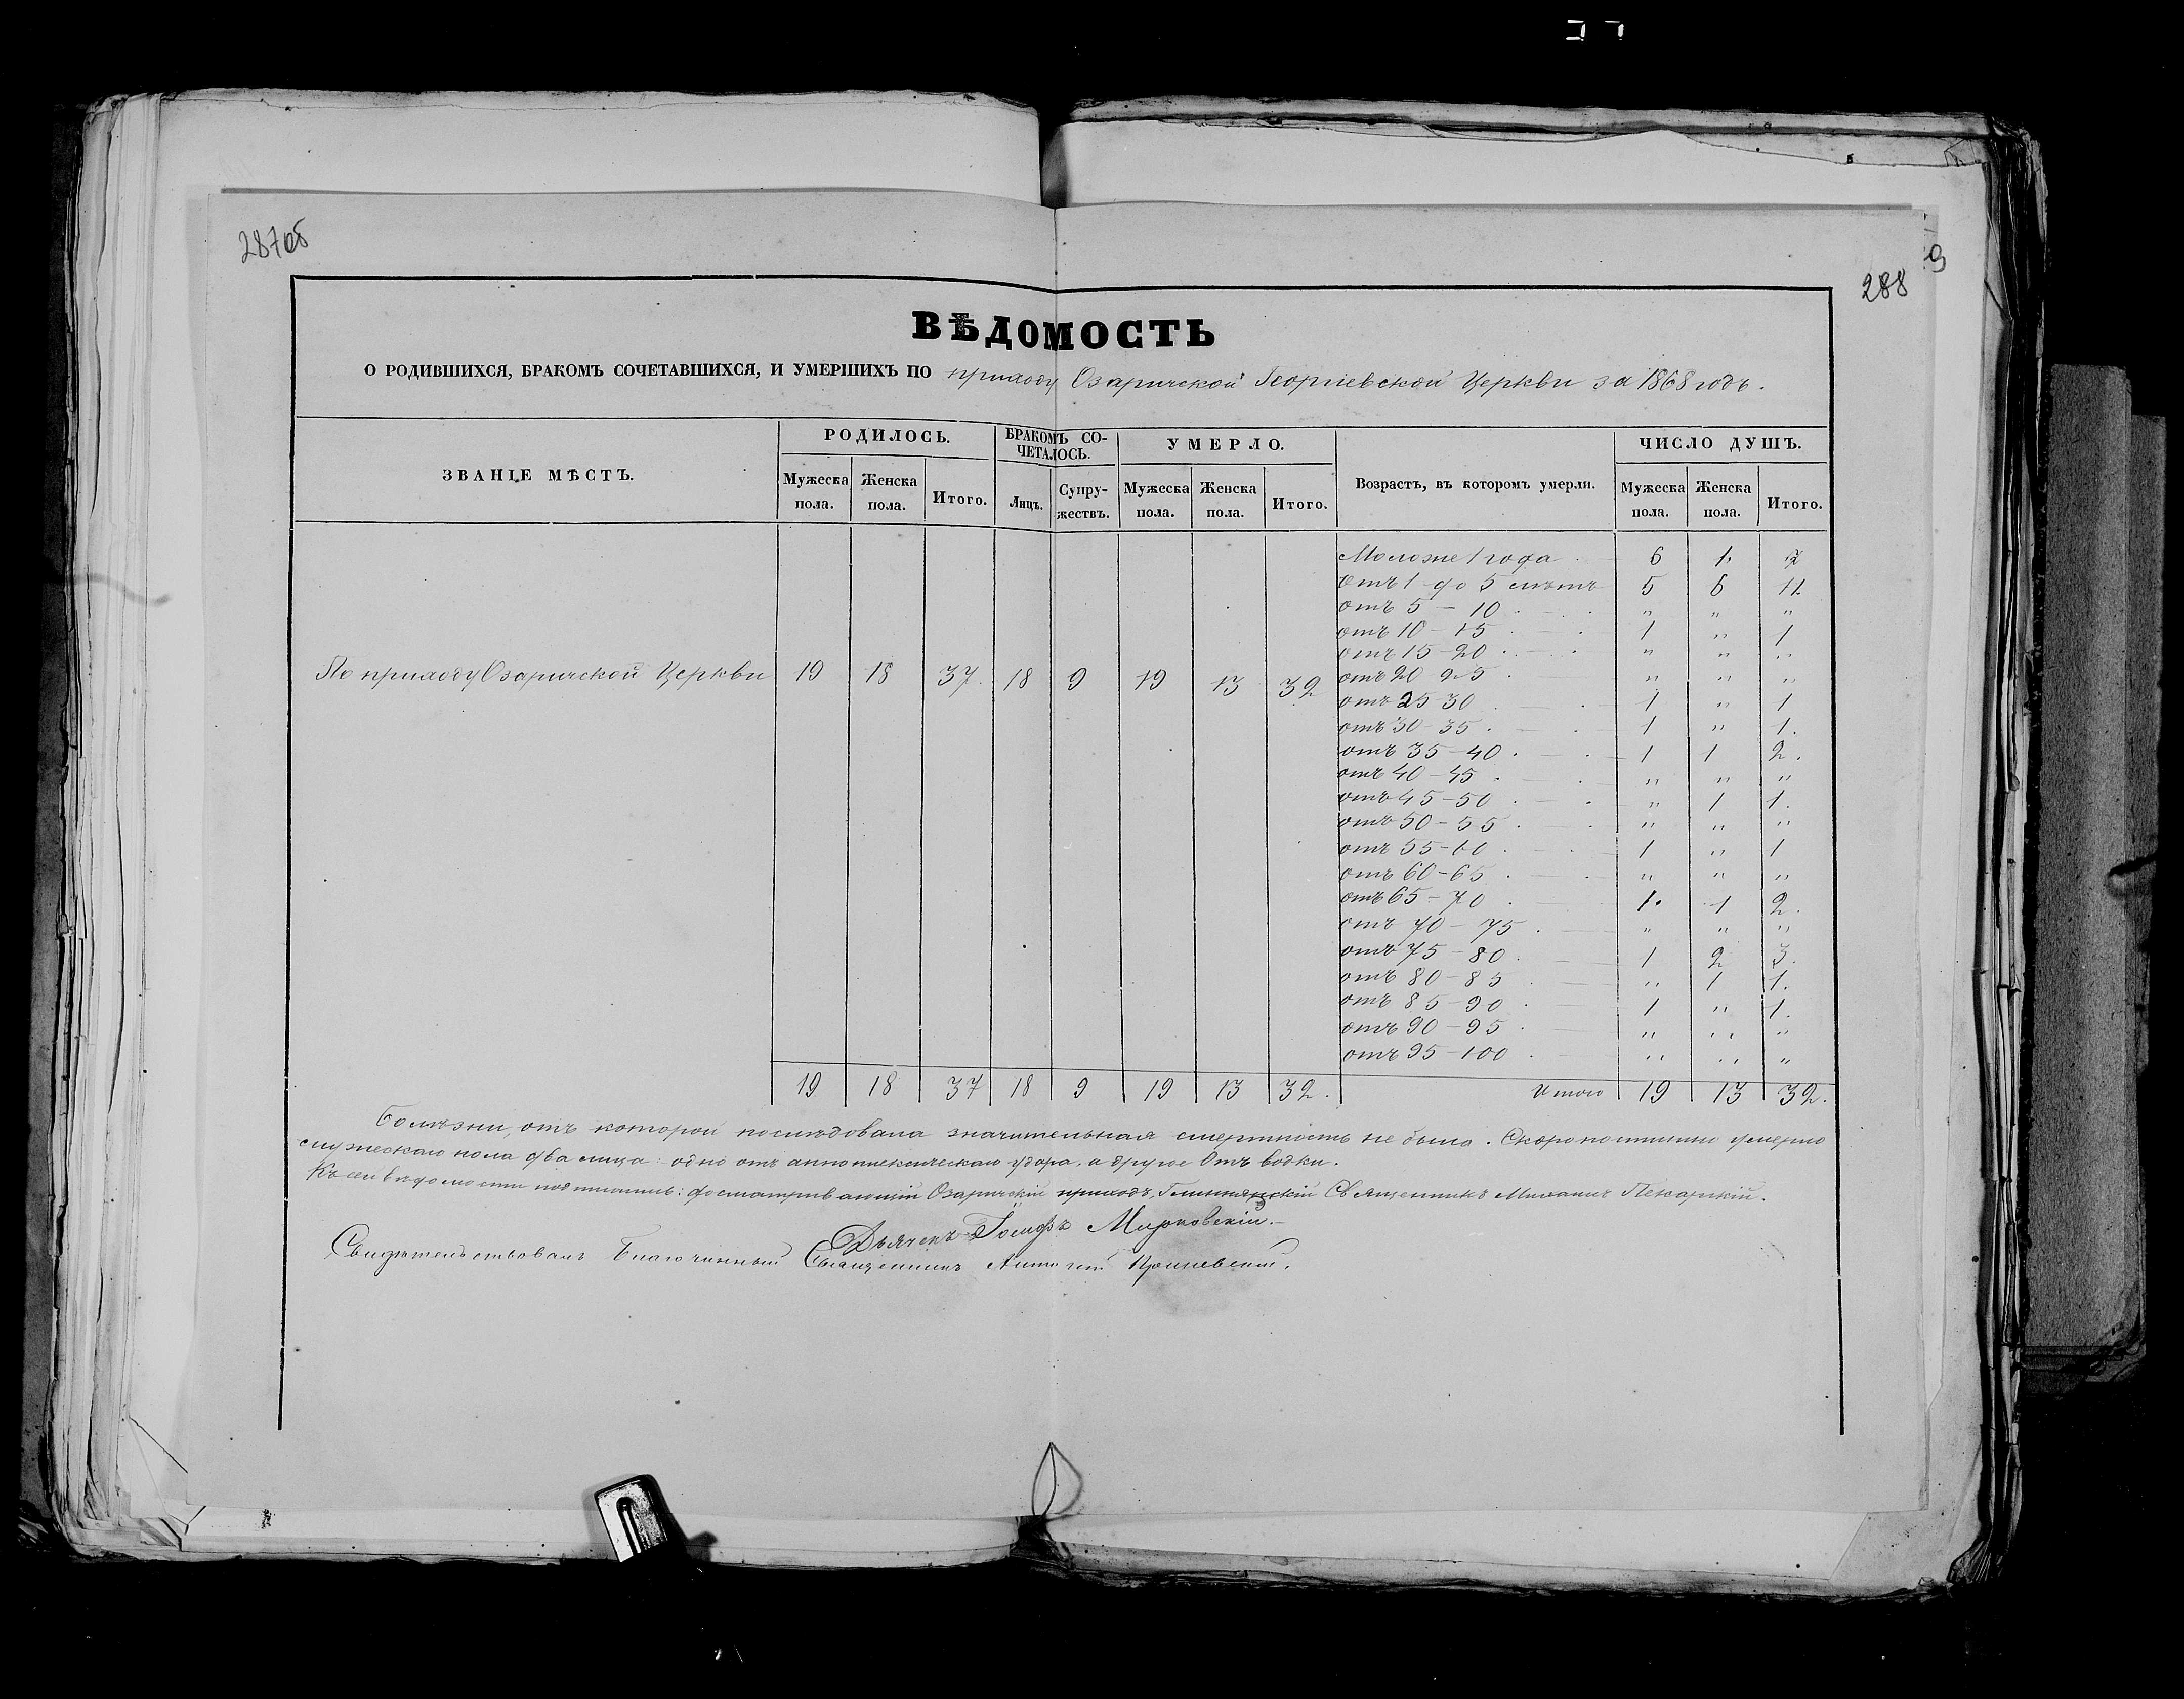 287об
288
9
ВѢДОМОСТЬ
О РОДИВШИХСЯ, БРАКОМЪ СОЧЕТАВШИХСЯ, И УМЕРШИХЪ ПО приходу Озаричской Георгіевской Церкви за 1868 годъ.
ЗВАНІЕ МѢСТЪ. РОДИЛОСЬ. БРАКОМЪ СО- УМЕРЛО. Возрастъ, въ которомъ умерли. ЧИСЛО ДУШЪ.
ЧЕТАЛОСЬ.
Мужеска Женска Итого. Лицъ. Супру- Мужеска Женска Итого. Мужеска Женска Итого.
пола. пола. жествъ. пола. пола. пола. пола.
Моложе 1 года 6 1. 7
Отъ 1 до 5 лѣтъ 5 6 11
отъ 5 – 10 " " "
отъ 10 – 15 1 " 1
отъ 15 – 20 " " "
По приходу Озаричской Церкви 19 18 37. 18 9 19 13 32 отъ 20 25 " " "
отъ 25 30 1 " 1
отъ 30 – 35 1 " 1.
отъ 35 – 40 1 1 2.
отъ 40 – 45 " " "
отъ 45 – 50 " 1 1.
отъ 50 – 55 " " "
отъ 55 – 60 1 " 1
отъ 60 – 65 " " "
отъ 65 – 70 1. 1 2.
отъ 70 – 75 " " "
отъ 75 – 80 1 2 3.
отъ 80 – 85 " 1 1.
отъ 85 – 90 1 " 1.
отъ 90 – 95 " " "
отъ 95 – 100 " " "
19 18 37 18 9 19 13 32. Итого 19 13 32.
Болѣзни, отъ которой послѣдовала значительная смертность не было. Скоропостижно умерло
мужескаго пола два лица: одно отъ апоплексическаго удара, а другое Отъ водки.
Къ сей вѣдомости подписались: досматривающій Озаричскій приходъ, Священникъ Михаилъ Пекарскій.
Дьячекъ Іосифъ Марковскій.
Свидѣтельствовалъ Благочинный Священникъ